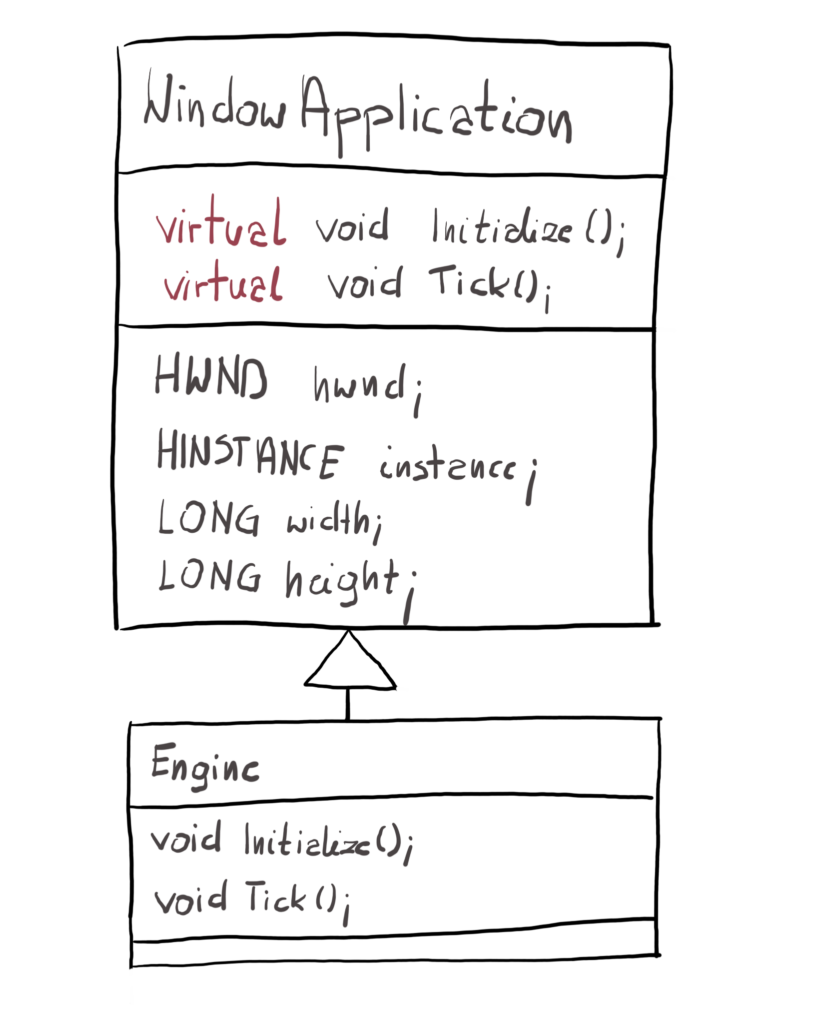 WindowApplication
virtual void Initialize();
virtual void Tick();
HWND hwnd;
HINSTANCE instance;
LONG width;
LONG height;
Engine
void Initialize();
void Tick();